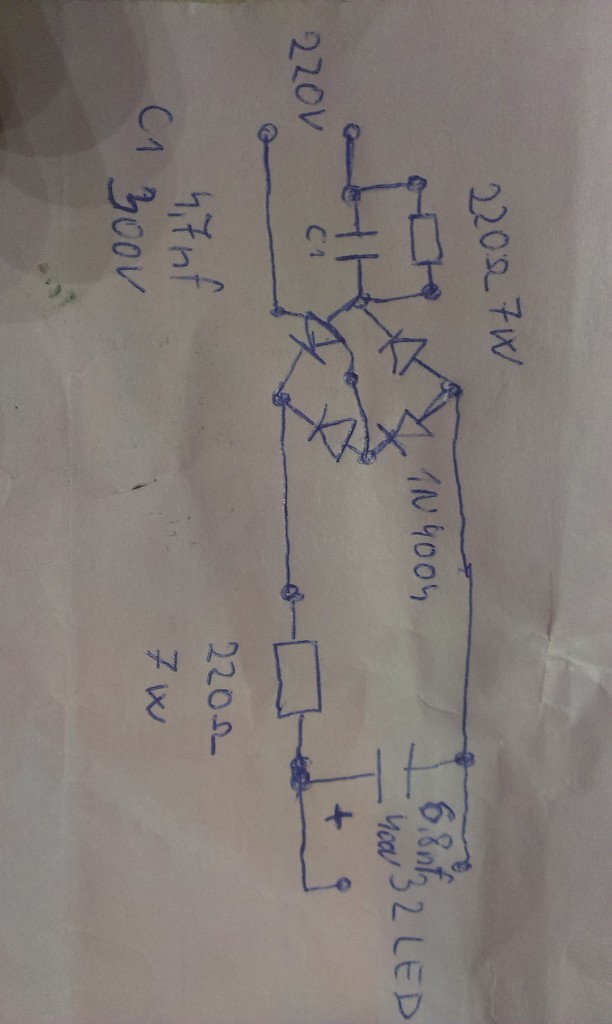 220V
C1
4,7nf
300V
C1
220Ω 7W
1N4004
220Ω
7W
+
6,8nf
400V
32 LED